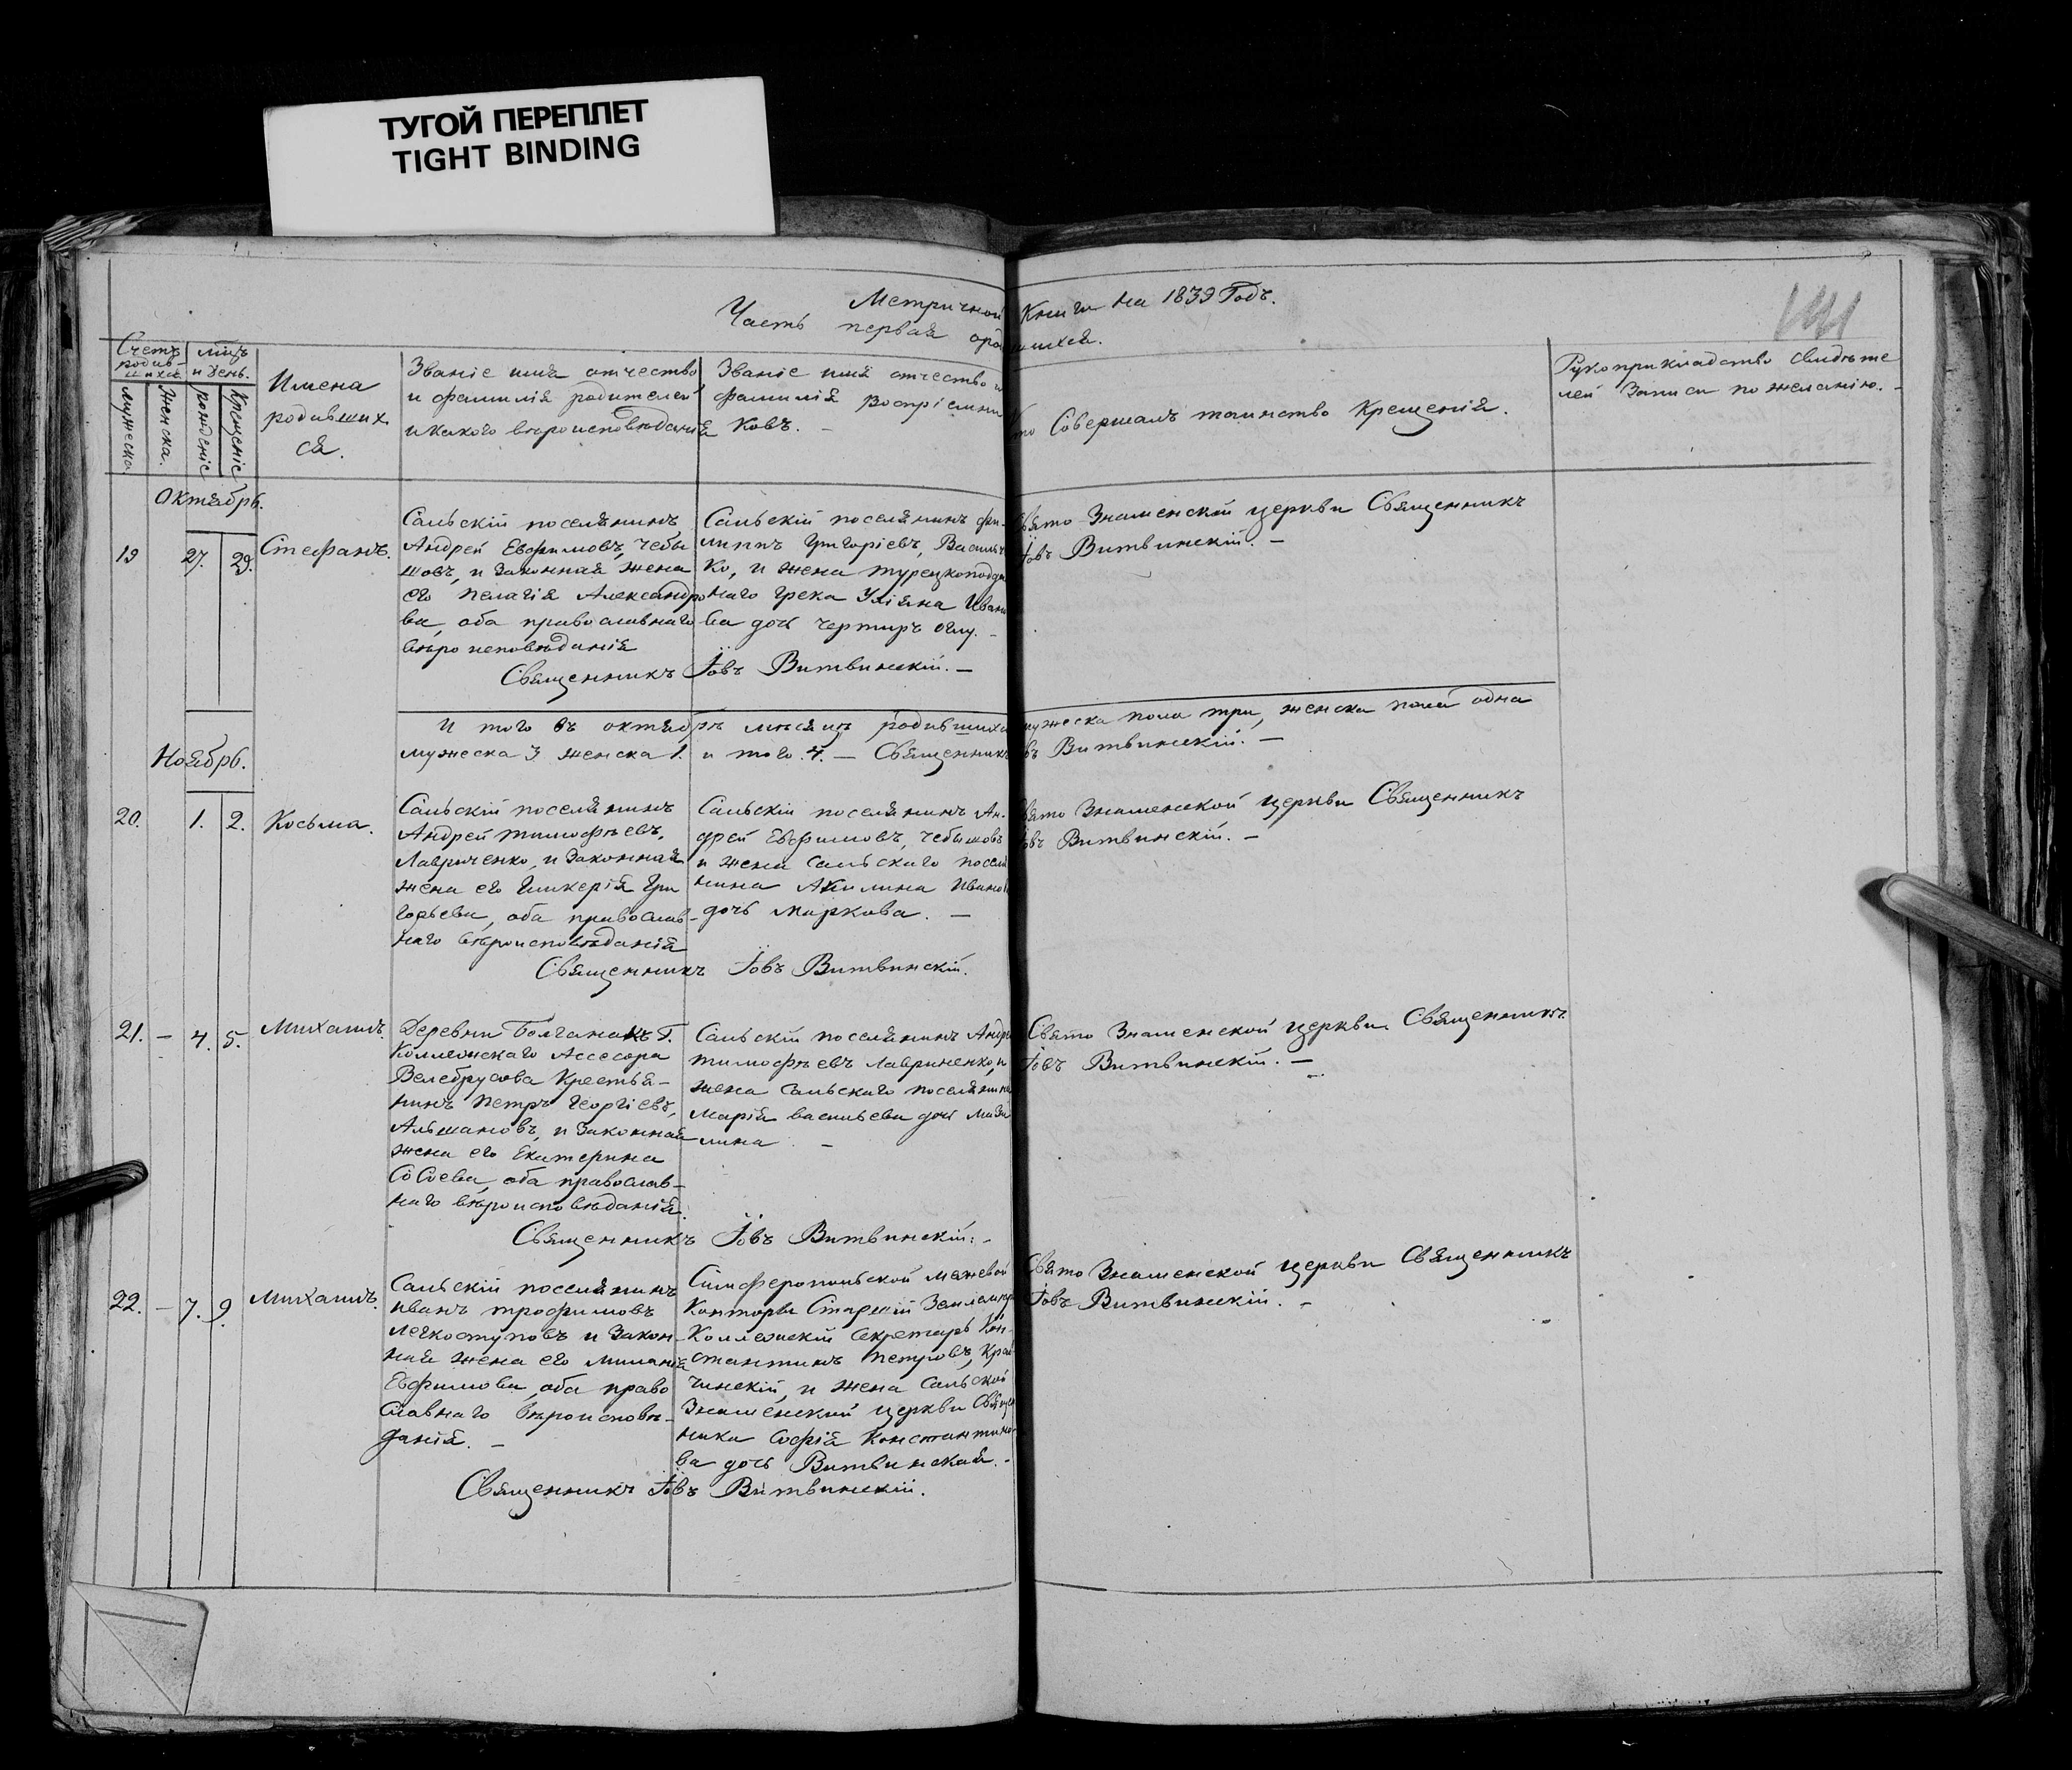 ТУГОЙ ПЕРЕПЛЕТ
TIGHT BINDING
Метричной Книги на 1839 Годъ.
Часть первая о родившихся.
141
Счетъ родив-шихся.
мужеска.
женска.
мцъ и день.
рожденіе
крещеніе
Имена
родивших
ся.
Званіе имя отчество
и фамилія родителей
и какого вѣроисповѣданія
Званіе имя отчество и
фамилія воспріемни
ковъ. -
Кто Совершалъ таинство Крещенія.
Рукоприкладство свидѣте
лей Записи по желанію. -
Октябрь.
19
27. 29.
Стефанъ.
Сальскій поселянинъ
Андрей Евфимовъ, Чебы
шовъ, и Законная жена
его Пелагія Александро
ва, оба православнаго
вѣроисповѣданія
Сальскій поселянинъ Фи-
липпъ Григоріевъ, Васильч
ко, и жена турецкоподда
наго Грека Уліяна Ивано
ва дочь Чертиръ Оглу. -
Священникъ Іовъ Витвинскій. —
Свято Знаменской церкви Священникъ
Іовъ Витвинскій. -
И того въ октябрѣ мѣсяцѣ родившихся мужеска пола три, женска пола одна
мужеска 3 женска 1. и того. 4. — Священникъ Іовъ Витвинскій. —
Ноябрь.
20.
1. 2.
Косьма.
Сальскій поселянинъ
Андрей Тимофѣевъ,
Лавриченко, и Законная
жена его Гликерія Гри
горьева, оба православ-
наго вѣроисповѣданія
Сальскій поселянинъ Ан-
дрей Евфимовъ, Чебышовъ
и жена Сальскаго поселя
нина Акилина Иванов
дочь Маркова. —
Священникъ Іовъ Витвинскій.
Свято Знаменской церкви Священникъ
Іовъ Витвинскій. -
21. — 4. 5.
Михаилъ.
Деревни Болганакъ Г.
Коллежскаго Ассесора
Велебрусова Крестья-
нинъ Петръ Георгіевъ,
Альшановъ, и Законная
жена его Екатерина
Сосоева, оба православ-
наго вѣроисповѣданія.
Сальскій поселянинъ Андре
Тимофѣевъ Лавриненко, и
жена Сальскаго поселянина
Марія Васильева дочь Мази
лина -
Священникъ Іовъ Витвинскій. -
Свято Знаменской церкви Священникъ
Іовъ Витвинскій. —
22. — 7. 9.
Михаилъ.
Сальскій поселянинъ
Иванъ Трофимовъ
Легкоступовъ и Закон-
ная жена его Миланія
Евфимова, оба право
славнаго вѣроисповѣ-
данія. -
Симферопольской межевой
Конторы Старшій Землемѣръ
Коллежскій Секретарь Кон-
стантинъ Петровъ, Кра
чинскій, и жена Сальской
Знаменской церкви Священ
ника Софія Константино-
ва дочь Витвинская. -
Священникъ Іовъ Витвинскій.
Свято Знаменской церкви Священникъ
Іовъ Витвинскій. -